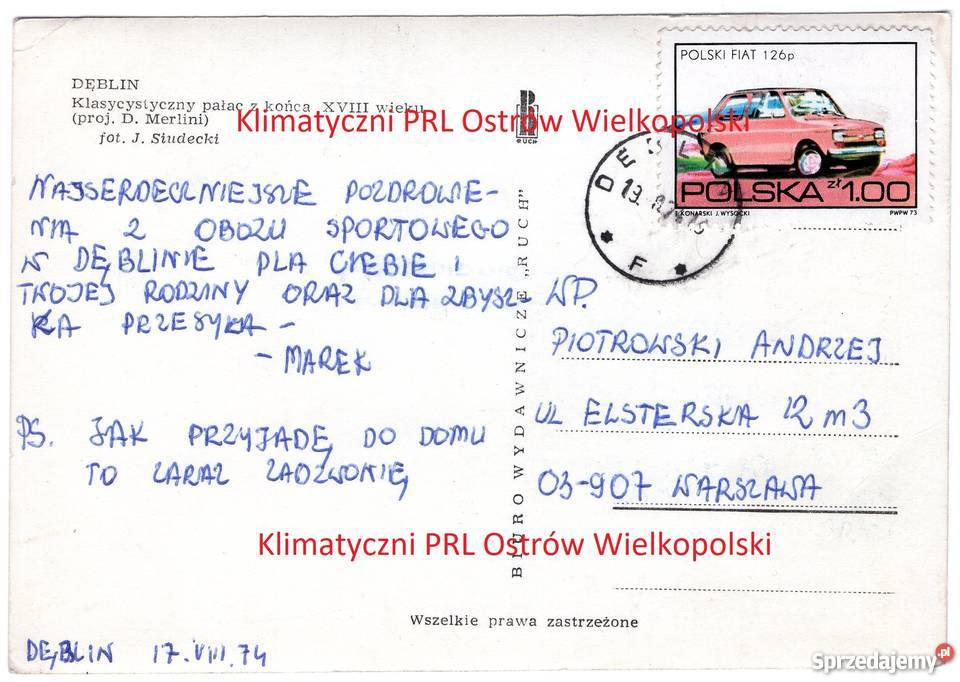 DĘBLIN
Klasycystyczny pałac z końca XVIII wieku
(proj. D. Merlini)
fot. J. Siudecki
Klimatyczni PRL Ostrów Wielkopolski
RUCH
POLSKI FIAT 126p
POLSKA zł 1.00
E. KONARSKI J. WYSOCKI
PWPW 73
DĘBLIN
19.
F
NAJSERDECZNIEJSZE POZDROWIE-
NIA Z OBOZU SPORTOWEGO
W DĘBLINIE DLA CIEBIE I
TWOJEJ RODZINY ORAZ DLA ZBYSZ-
KA PRZESYŁA -
- MAREK
PS. JAK PRZYJADĘ DO DOMU
TO ZARAZ ZADZWONIĘ
BIURO WYDAWNICZE „RUCH”
WP.
PIOTROWSKI ANDRZEJ
UL ELSTERSKA 12 m3
03-907 WARSZAWA
Klimatyczni PRL Ostrów Wielkopolski
Wszelkie prawa zastrzeżone
DĘBLIN 17.VIII.74
Sprzedajemy.pl